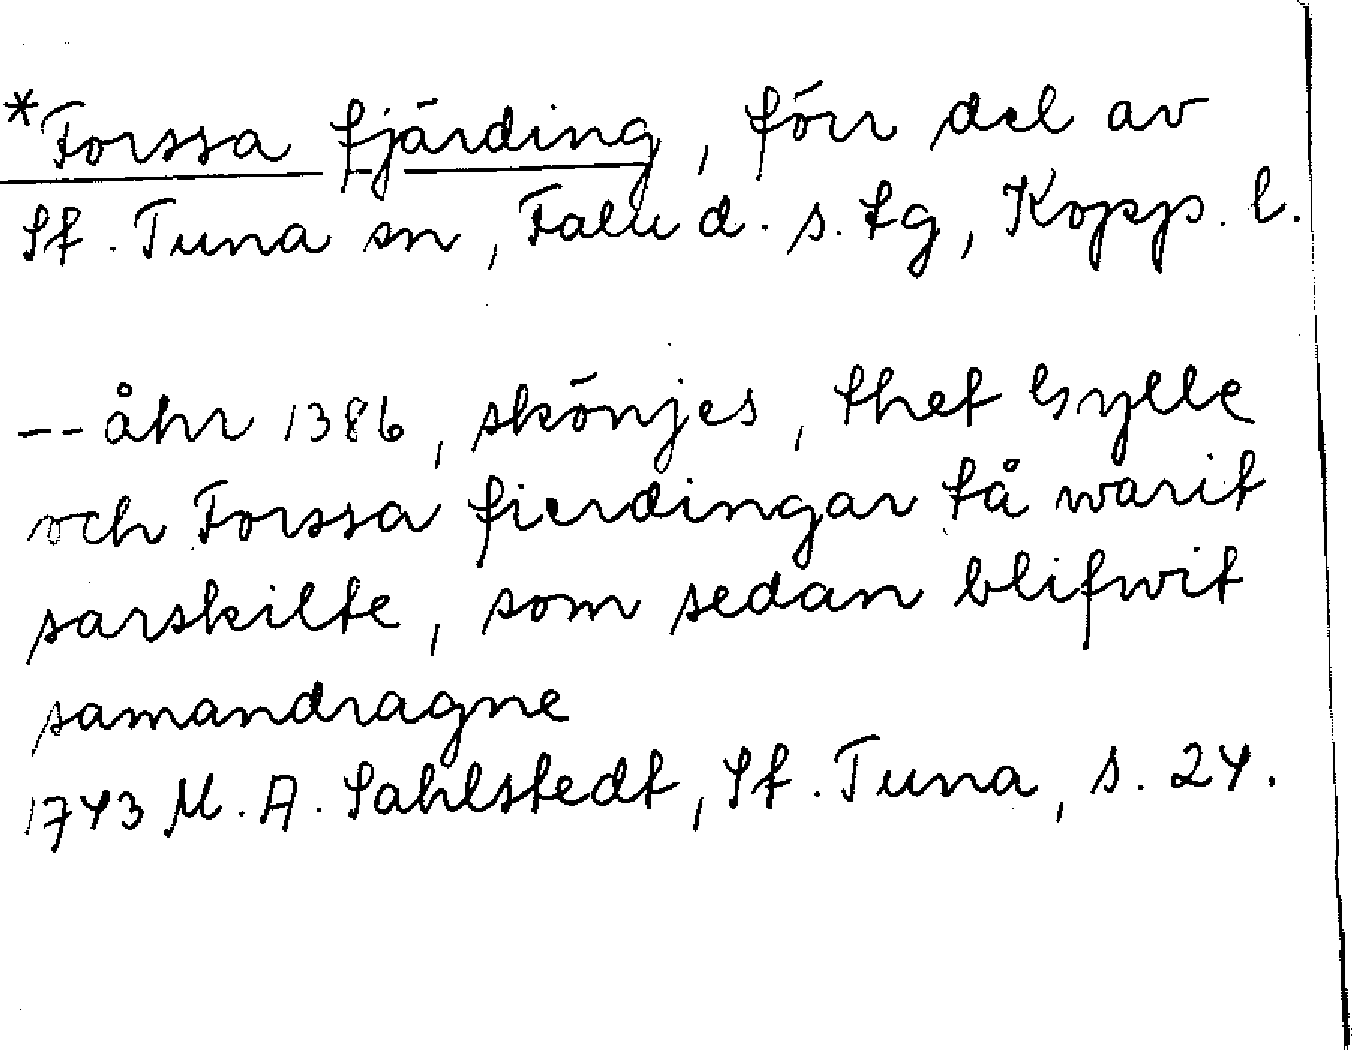 *Forssa fjärding, förr del av
St. Tuna sn, Falu d. s. tg, Kopp. l.
-- åhr 1386, skönjes, thet Gylle
och Forssa fierdingar tå warit
sarskilte, som sedan blifwit
samandragne
1743 M. A. Sahlstedt, St. Tuna, s. 24.